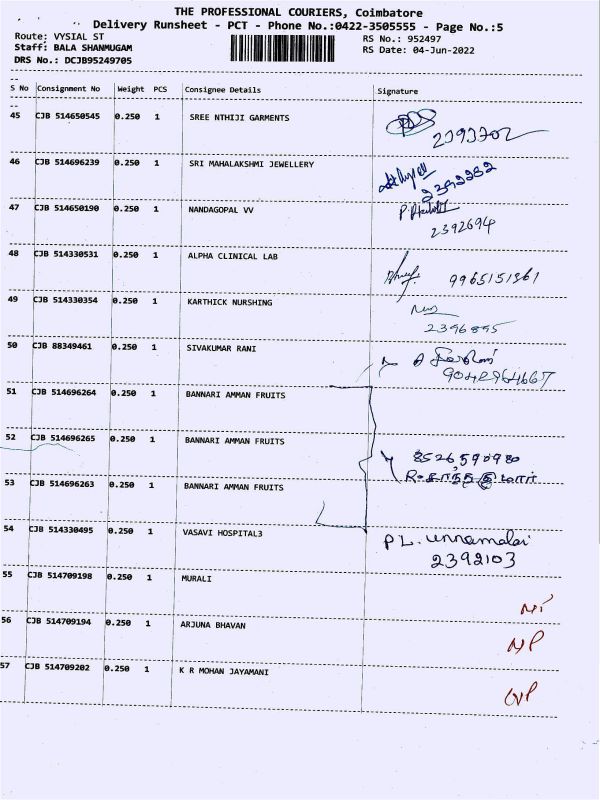 THE PROFESSIONAL COURIERS, Coimbatore
Delivery Runsheet - PCT - Phone No.:0422-3505555 - Page No.:5
Route: VYSIAL ST RS No.: 952497
Staff: BALA SHANMUGAM RS Date: 04-Jun-2022
DRS No.: DCJB95249705
S No Consignment No Weight PCS Consignee Details Signature
45 CJB 514650545 0.250 1 SREE NTHIJI GARMENTS
2393702
46 CJB 514696239 0.250 1 SRI MAHALAKSHMI JEWELLERY
2392282
47 CJB 514650190 0.250 1 NANDAGOPAL VV
2392694
48 CJB 514330531 0.250 1 ALPHA CLINICAL LAB
9965151361
49 CJB 514330354 0.250 1 KARTHICK NURSHING
2396895
50 CJB 88349461 0.250 1 SIVAKUMAR RANI
9042964667
51 CJB 514696264 0.250 1 BANNARI AMMAN FRUITS
52 CJB 514696265 0.250 1 BANNARI AMMAN FRUITS
8526590980
53 CJB 514696263 0.250 1 BANNARI AMMAN FRUITS
54 CJB 514330495 0.250 1 VASAVI HOSPITAL3
P L. Unnamalai
2392103
55 CJB 514709198 0.250 1 MURALI
56 CJB 514709194 0.250 1 ARJUNA BHAVAN
57 CJB 514709202 0.250 1 K R MOHAN JAYAMANI